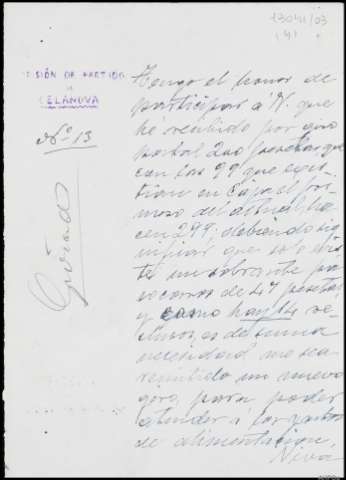 13041/03
(4)
PRISIÓN DE PARTIDO
DE
CELANOVA
Nº 13
Tengo el honor de
participar á V. que
hé recibido por giro
postal 200 pesetas, que
con las 99 que exis-
tian en Caja el pri-
mero del actual, ha-
cen 299; debiendo sig-
nificar que solo exis-
te un sobrante pa
socorros de 47 pesetas
y como hay 14 ré-
clusos, es de suma
necesidad me sea
remitido un nuevo
giro, para poder
atender á los gastos
de alimentacion,
Viva